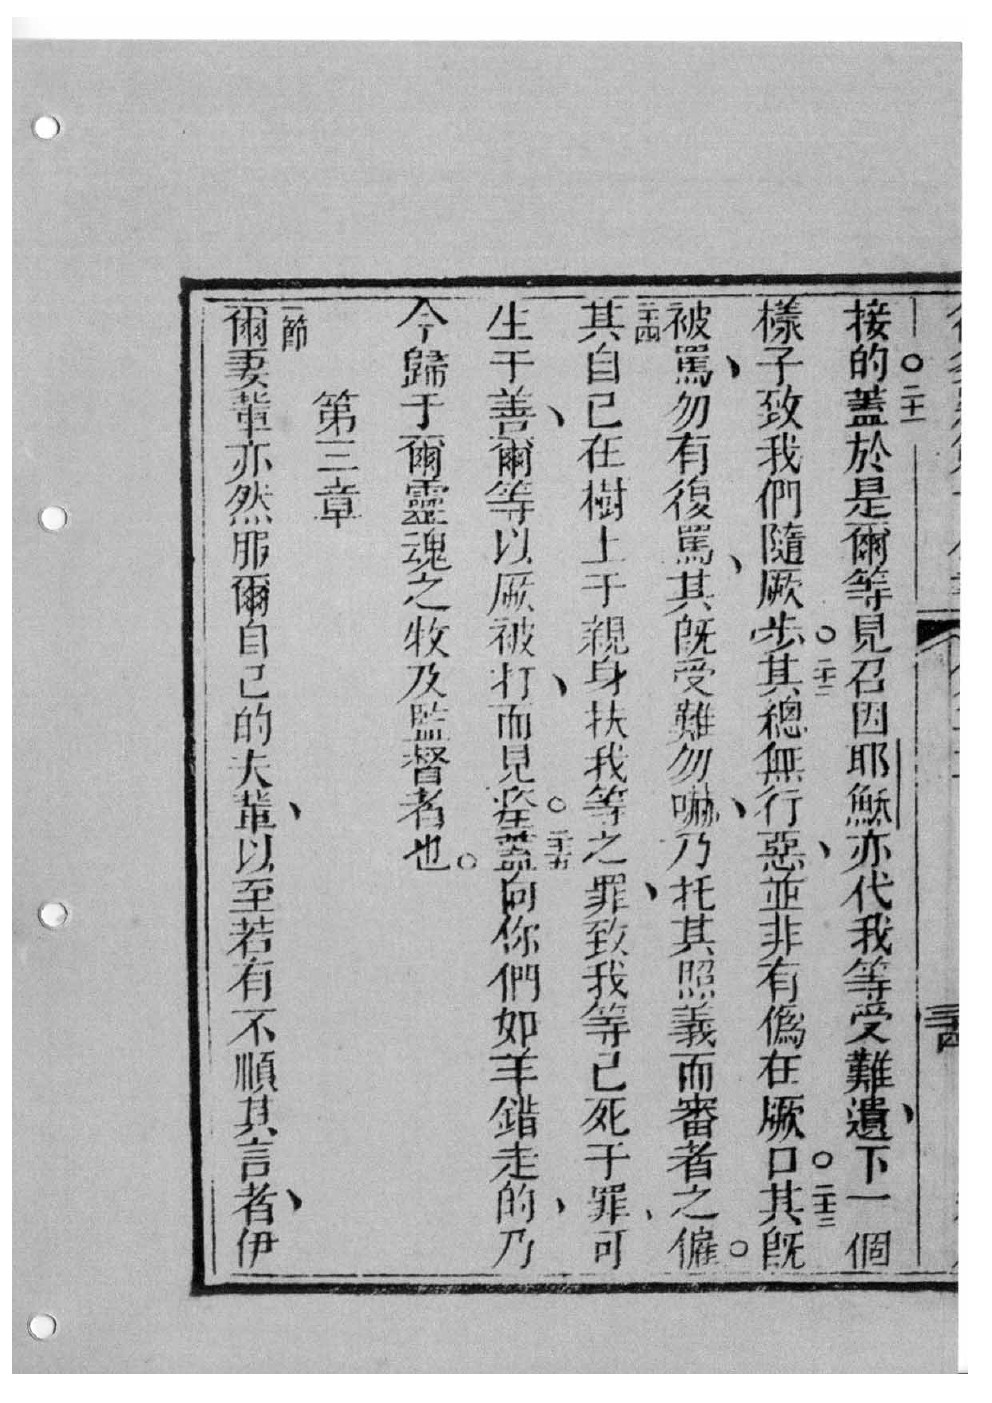 接的。二十一蓋於是爾等見召因耶穌亦代我等受難、遺下一個
樣子致我們隨厥步。二十二其總無行惡、並非有僞在厥口。二十三其旣
被罵、勿有復罵、其旣受難勿嚇、乃托其照義而審者之僱。
二十四其自己在樹上于親身扶我等之罪、致我等已死于罪、可
生于善、爾等以厥被打、而見痊。二十五蓋向你們如羊錯走的、乃
今歸于爾靈魂之牧及監督者也。
第三章
一節爾妻輩亦然服爾自己的夫輩、以至若有不順其言者、伊